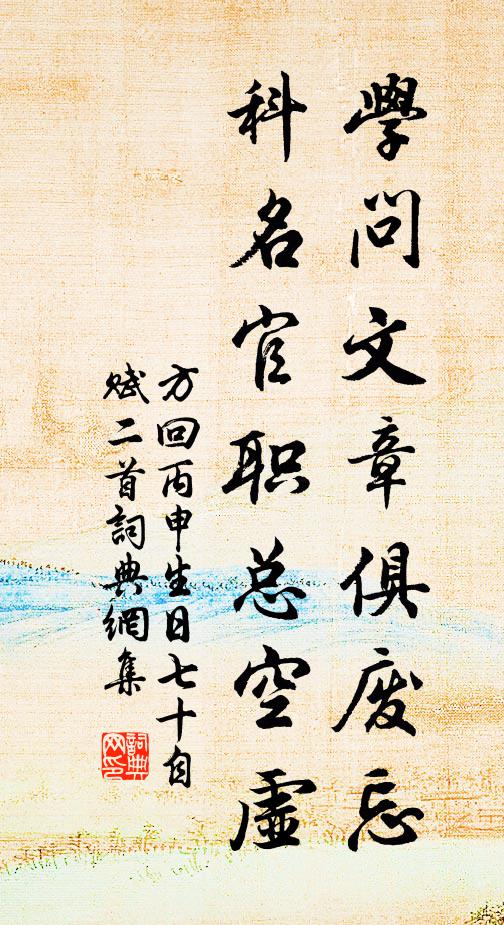 學問文章俱废忘
科名官职总空虛
方回丙申生日七十自
赋二首詞典網集
詞典
网印